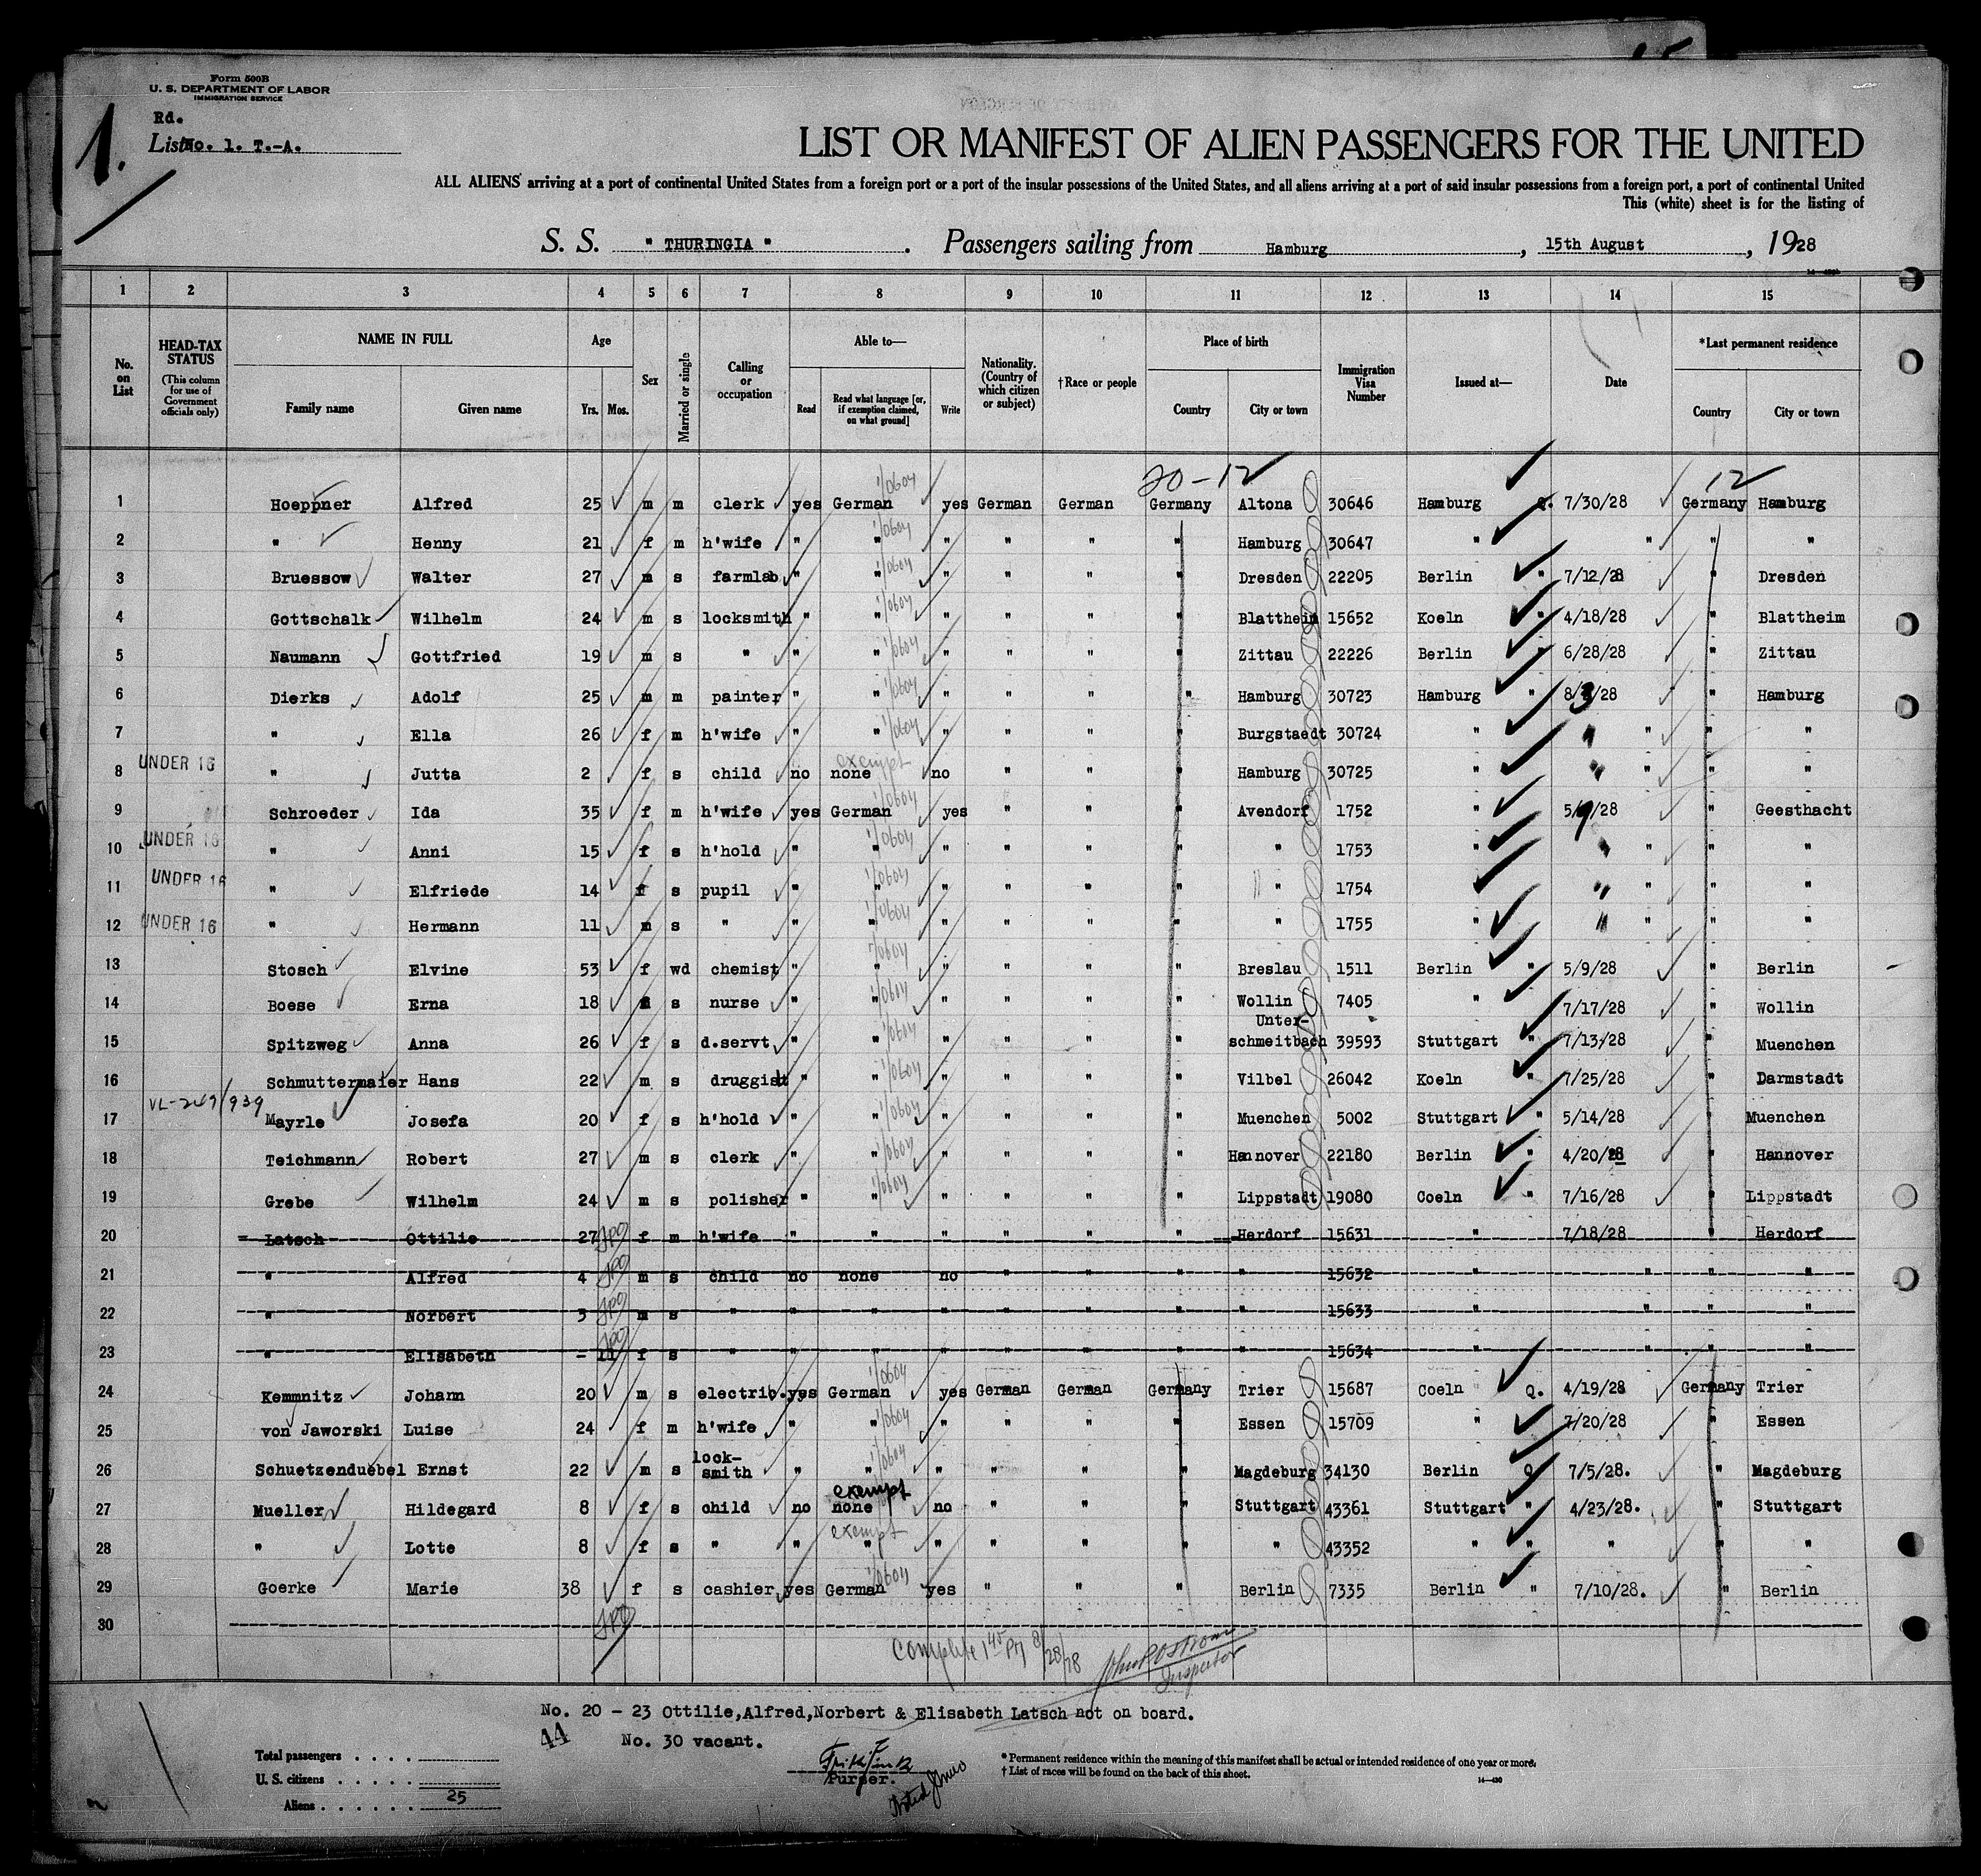 Form 500B
U. S. DEPARTMENT OF LABOR
IMMIGRATION SERVICE
Rd.
1.
List No. 1. T.-A.
LIST OR MANIFEST OF ALIEN PASSENGERS FOR THE UNITED
ALL ALIENS arriving at a port of continental United States from a foreign port or a port of the insular possessions of the United States, and all aliens arriving at a port of said insular possessions from a foreign port, a port of continental United
This (white) sheet is for the listing of
S. S. " THURINGIA " . Passengers sailing from Hamburg , 15th August , 1928
1 2 3 4 5 6 7 8 9 10 11 12 13 14 15
No. on List
HEAD-TAX STATUS (This column for use of Government officials only)
NAME IN FULL Family name Given name
Age Yrs. Mos.
Sex
Married or single
Calling or occupation
Able to— Read Read what language [or, if exemption claimed, on what ground] Write
Nationality. (Country of which citizen or subject)
†Race or people
Place of birth Country City or town
Immigration Visa Number
Issued at—
Date
*Last permanent residence Country City or town
20-12 12
1 Hoeppner Alfred 25 m m clerk yes German yes German German Germany Altona 30646 Hamburg Q. 7/30/28 Germany Hamburg
2 " Henny 21 f m h'wife " " " " " " Hamburg 30647 " " " "
3 Bruessow Walter 27 m s farmlab " " " " " " Dresden 22205 Berlin " 7/12/28 " Dresden
4 Gottschalk Wilhelm 24 m s locksmith " " " " " " Blattheim 15652 Koeln " 4/18/28 " Blattheim
5 Naumann Gottfried 19 m s " " " " " " " Zittau 22226 Berlin " 6/28/28 " Zittau
6 Dierks Adolf 25 m m painter " " " " " " Hamburg 30723 Hamburg " 8/3/28 " Hamburg
7 " Ella 26 f m h'wife " " " " " " Burgstaedt 30724 " " " " "
8 UNDER 16 " Jutta 2 f s child no none exempt no " " " Hamburg 30725 " " " " "
9 Schroeder Ida 35 f m h'wife yes German yes " " " Avendorf 1752 " 5/9/28 " Geesthacht
10 UNDER 16 " Anni 15 f s h'hold " " " " " " " 1753 " " " " "
11 UNDER 16 " Elfriede 14 f s pupil " " " " " " " 1754 " " " " "
12 UNDER 16 " Hermann 11 m s " " " " " " " " 1755 " " " " "
13 Stosch Elvine 53 f wd chemist " " " " " " Breslau 1511 Berlin " 5/9/28 " Berlin
14 Boese Erna 18 s nurse " " " " " " Wollin 7405 " " 7/17/28 " Wollin
15 Spitzweg Anna 26 f s d.servt. " " " " " " Unter-schmeitbach 39593 Stuttgart " 7/13/28 " Muenchen
16 Schmuttermaier Hans 22 m s druggist " " " " " " Vilbel 26042 Koeln " 7/25/28 " Darmstadt
17 Mayrle Josefa 20 f s h'hold " " " " " " Muenchen 5002 Stuttgart " 5/14/28 " Muenchen
18 Teichmann Robert 27 m s clerk " " " " " " Hannover 22180 Berlin " 4/20/28 " Hannover
19 Grebe Wilhelm 24 m s polisher " " " " " " Lippstadt 19080 Coeln " 7/16/28 " Lippstadt
20 Latsch Ottilie 27 f m h'wife " " " " " " Herdorf 15631 " 7/18/28 " Herdorf
21 " Alfred 4 m s child no none no " " " " 15632 " " " "
22 " Norbert 3 m s " " " " " " " " 15633 " " " "
23 " Elisabeth - 11 f s " " " " " " " " 15634 " " " "
24 Kemmnitz Johann 20 m s electric. yes German yes German German Germany Trier 15687 Coeln Q. 4/19/28 Germany Trier
25 von Jaworski Luise 24 f m h'wife " " " " " " Essen 15709 " " 7/20/28 " Essen
26 Schuetzenduebel Ernst 22 m s lock-smith " " " " " " Magdeburg 34130 Berlin Q 7/5/28. " Magdeburg
27 Mueller Hildegard 8 f s child no none exempt no " " " Stuttgart 43361 Stuttgart " 4/23/28. " Stuttgart
28 " Lotte 8 f s " " " exempt " " " " " 43352 " " " " "
29 Goerke Marie 38 f s cashier yes German yes " " " Berlin 7335 Berlin " 7/10/28. " Berlin
30
Complete 1 45 PM 8/28/28 Inspector
No. 20 - 23 Ottilie,Alfred,Norbert & Elisabeth Latsch not on board.
44 No. 30 vacant.
Total passengers . . . .
U. S. citizens . . . . .
Aliens . . . . . . 25
Purser.
*Permanent residence within the meaning of this manifest shall be actual or intended residence of one year or more.
†List of races will be found on the back of this sheet.
14—430